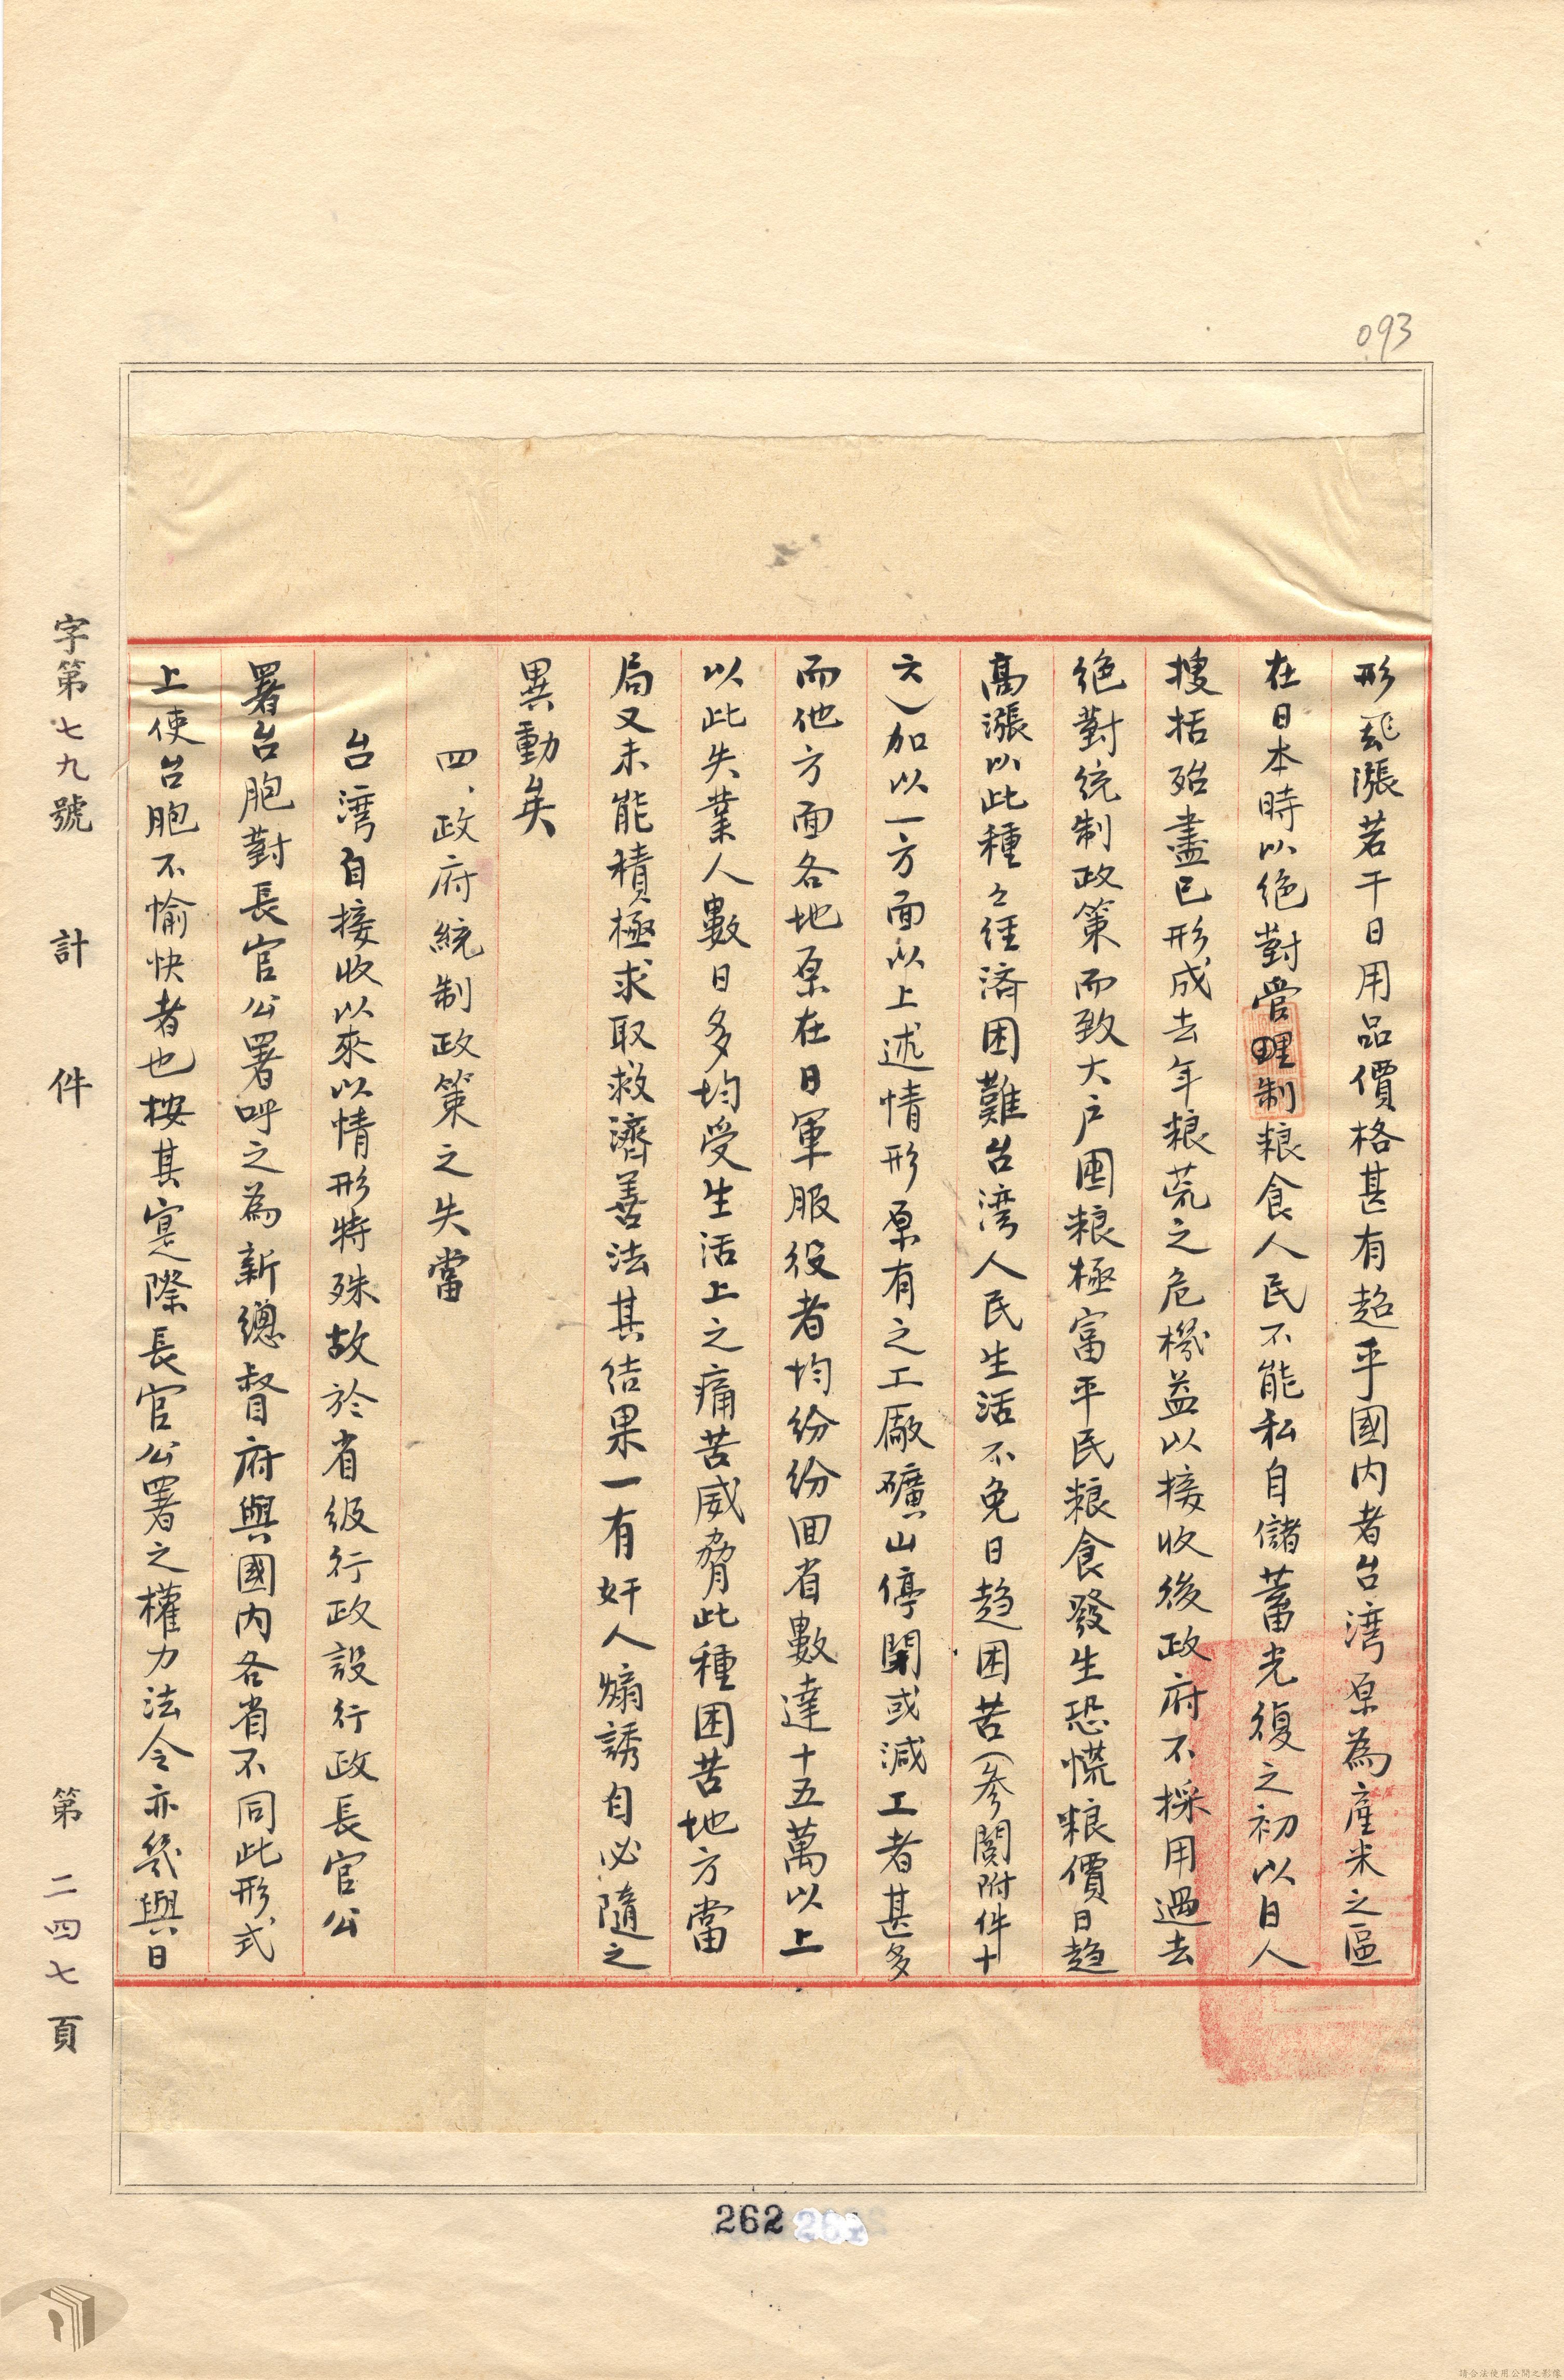 093
形飛漲若干日用品價格甚有超乎國內者台湾原為產米之區
在日本時以絕對管理制粮食人民不能私自儲蓄光復之初以日人
搜括殆盡已形成去年粮荒之危機益以接收後政府不採用過去
絕對統制政策而致大户囤粮極富平民粮食發生恐慌粮價日趋
高漲以此種々経済困難台湾人民生活不免日趋困苦(參閱附件十
六)加以一方面以上述情形原有之工廠礦山停閉或減工者甚多
而他方面各地原在日軍服役者均纷纷回省數達十五萬以上
以此失業人數日多均受生活上之痛苦威脅此種困苦地方當
局又未能積極求取救濟善法其结果一有奸人煽誘自必隨之
異動矣
四、政府統制政策之失當
台湾自接收以來以情形特殊故於省级行政設行政長官公
署台胞對長官公署呼之為新總督府與國內各省不同此形式
上使台胞不愉快者也按其寔際長官公署之權力法令亦幾與日
字第七九號 計 件 第二四七頁
262
請合法使用公開之影像